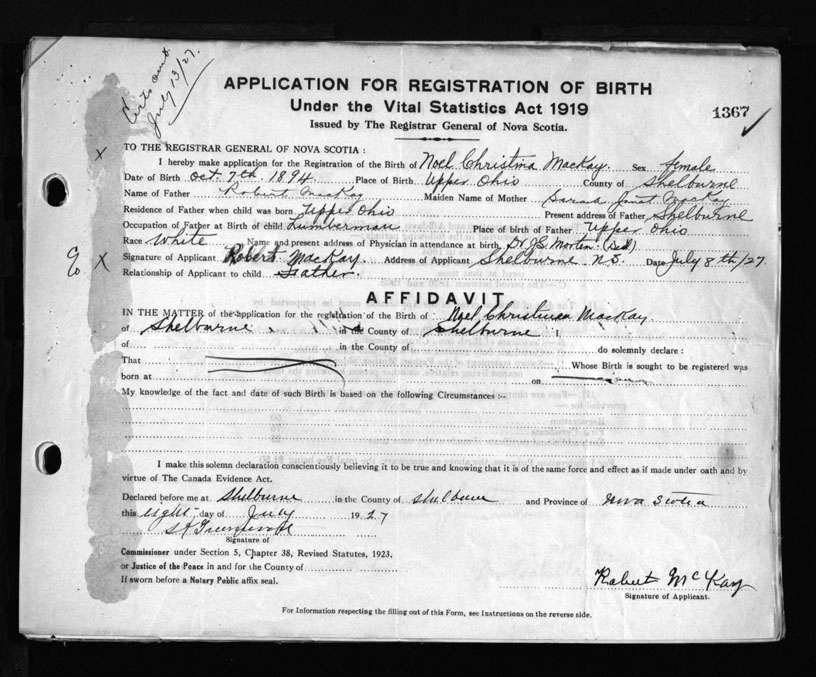 Certs sent
July 13/27.
APPLICATION FOR REGISTRATION OF BIRTH
Under the Vital Statistics Act 1919
1367
Issued by The Registrar General of Nova Scotia.
X TO THE REGISTRAR GENERAL OF NOVA SCOTIA :
I hereby make application for the Registration of the Birth of Noel Christina MacKay. Sex female
Date of Birth Oct. 7th. 1894. Place of Birth Upper Ohio County of Shelburne
Name of Father Robert MacKay Maiden Name of Mother Sarah Janet MacKay
Residence of Father when child was born Upper Ohio Present address of Father Shelburne
Occupation of Father at Birth of child Lumberman Place of birth of Father Upper Ohio
Race White Name and present address of Physician in attendance at birth Dr J.E. Morton (Ded)
X Signature of Applicant Robert MacKay. Address of Applicant Shelburne N.S. Date July 8th/27.
Relationship of Applicant to child Father.
AFFIDAVIT
IN THE MATTER of the application for the registration of the Birth of Noel Christina MacKay
of Shelburne in the County of Shelburne I
of in the County of do solemnly declare :
That Whose Birth is sought to be registered was
born at on
My knowledge of the fact and date of such Birth is based on the following Circumstances :-
I make this solemn declaration conscientiously believing it to be true and knowing that it is of the same force and effect as if made under oath and by
virtue of The Canada Evidence Act.
Declared before me at Shelburne in the County of Shelburne and Province of Nova Scotia
this eight day of July 1927
Signature of
Commissioner under Section 5, Chapter 38, Revised Statutes, 1923,
or Justice of the Peace in and for the County of
If sworn before a Notary Public affix seal.
Robert McKay
Signature of Applicant.
For Information respecting the filling out of this Form, see Instructions on the reverse side.